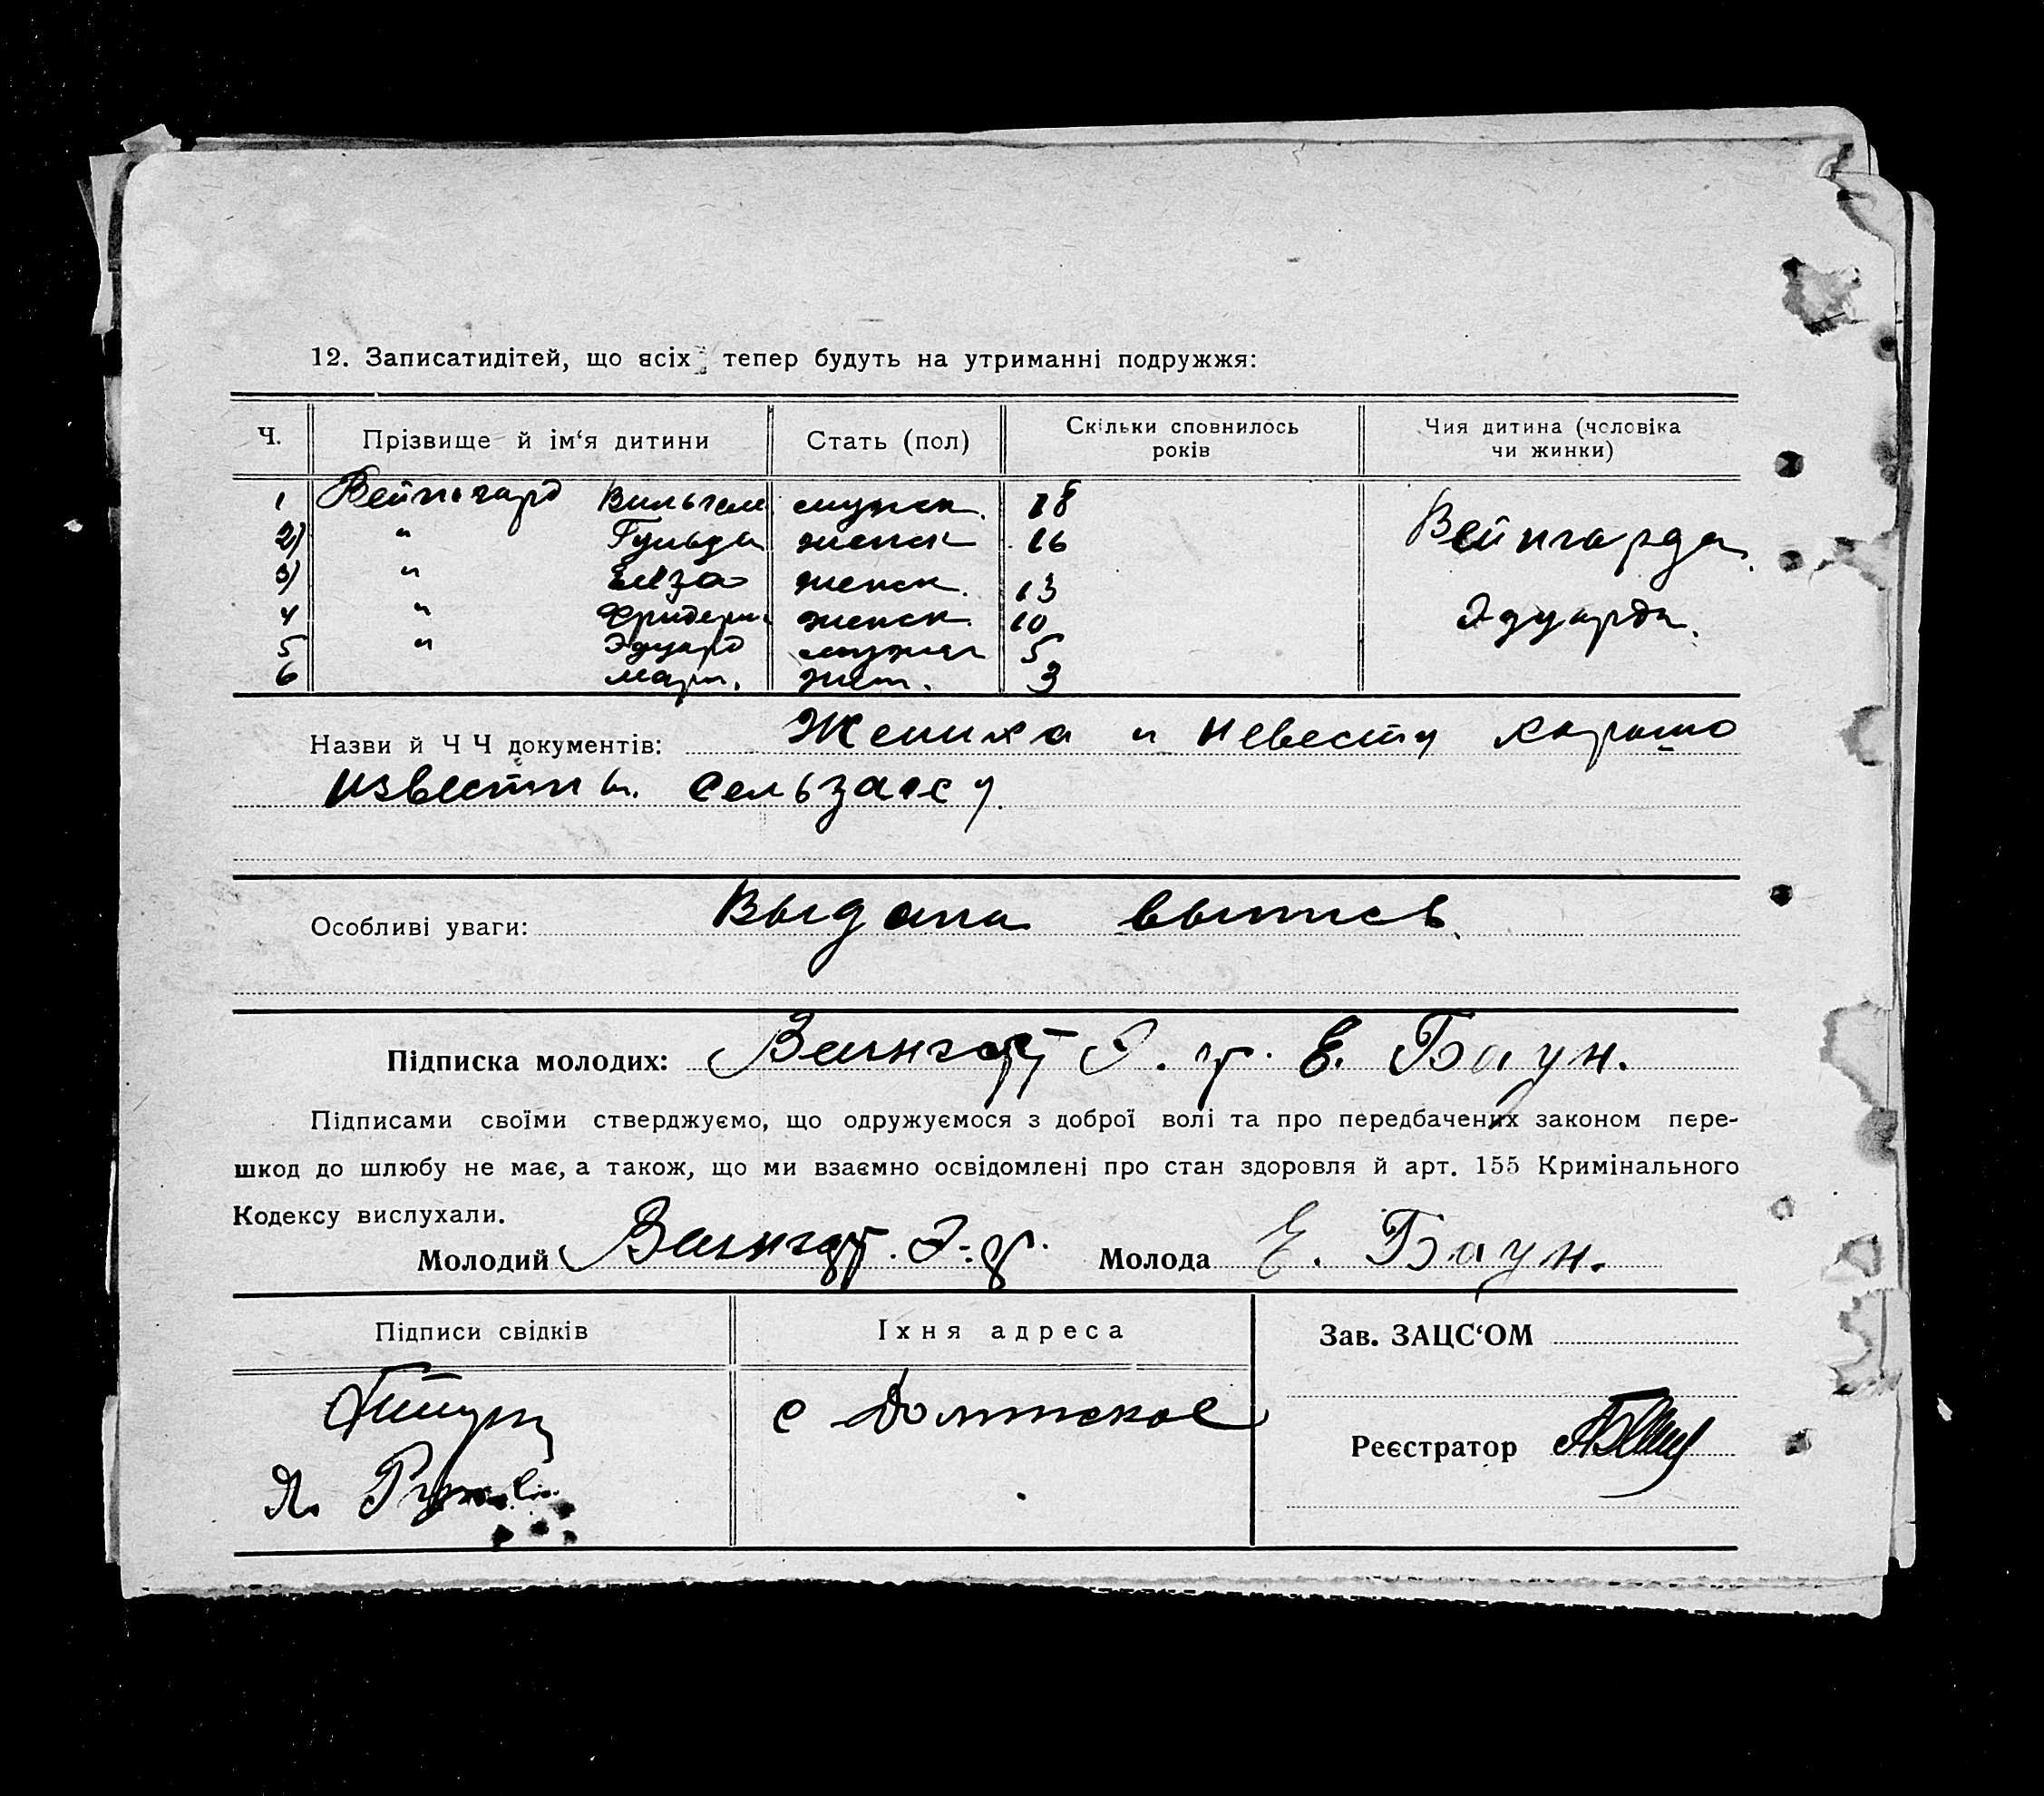 12. Записатидітей, що всіх тепер будуть на утриманні подружжя:
Ч. Прізвище й ім‘я дитини Стать (пол) Скільки сповнилось років Чия дитина (чоловіка чи жинки)
1 Вейнгард Вильгелм мужск. 18 Вейнгарда
2) " Гульда женск 16
3) " Елза женск. 13
4 " Фридери женск. 10 Эдуарда.
5 " Эдуард мужск 5
6 Мари. жен. 3
Назви й Ч Ч документів: Жениха и невесту хорошо
известны. сельзагсу.
Особливі уваги: Выдана выпись.
Підписка молодих: Вайнгарт Э. Е. Баун.
Підписами своїми стверджуємо, що одружуємося з доброї волі та про передбачених законом пере-
шкод до шлюбу не має, а також, що ми взаємно освідомлені про стан здоровля й арт. 155 Кримінального
Кодексу вислухали.
Молодий Вайнгарт. Э. Молода Е. Баун.
Підписи свідків Їхня адреса Зав. ЗАЦС‘ОМ
с
Реєстратор
Я.